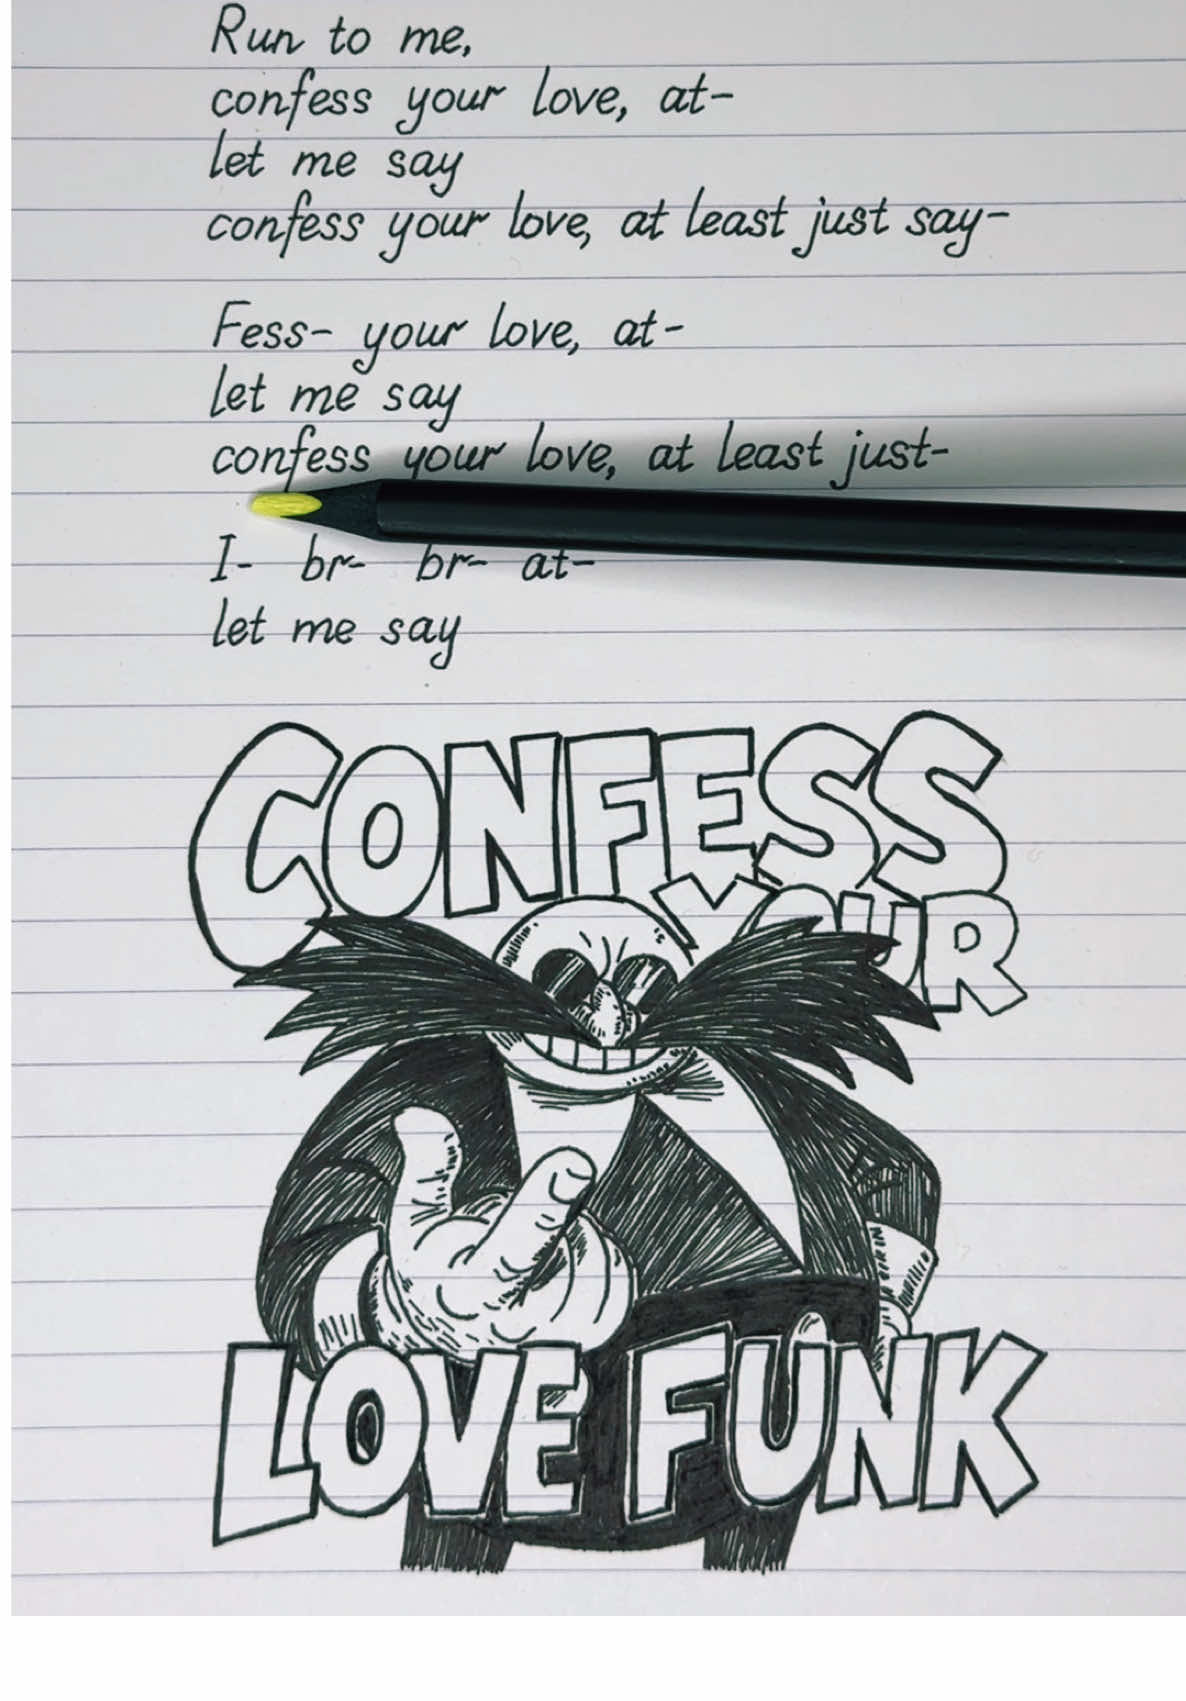 Run to me,
confess your love, at-
let me say
confess your love, at least just say-
Fess- your love, at-
let me say
confess your love, at least just-
I- br- br- at-
let me say
CONFESS
YOUR
LOVE FUNK